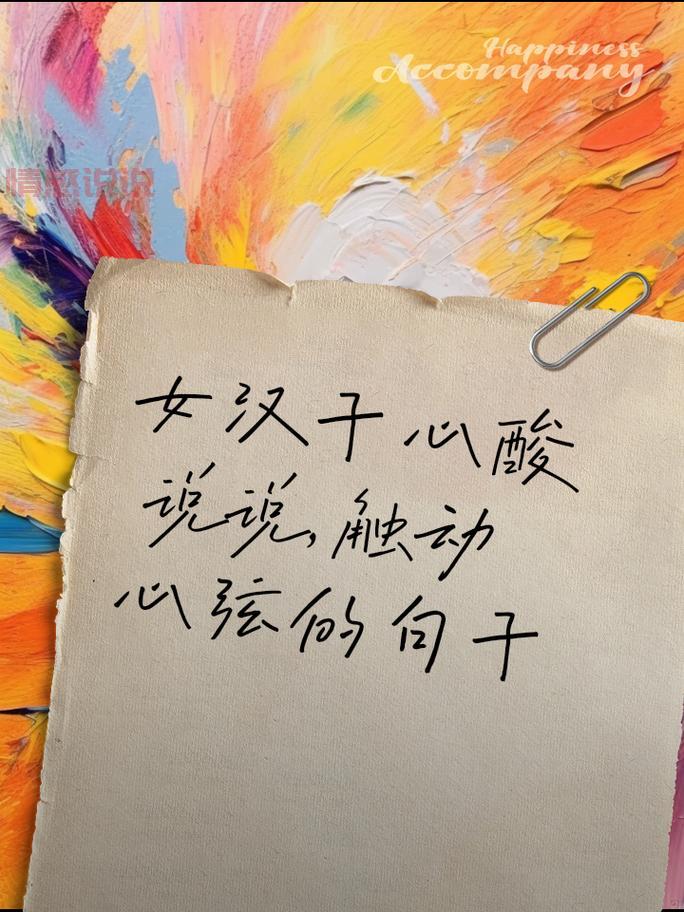 Happiness
Accompany
情感说说
女汉子心酸
说说,触动
心弦的句子